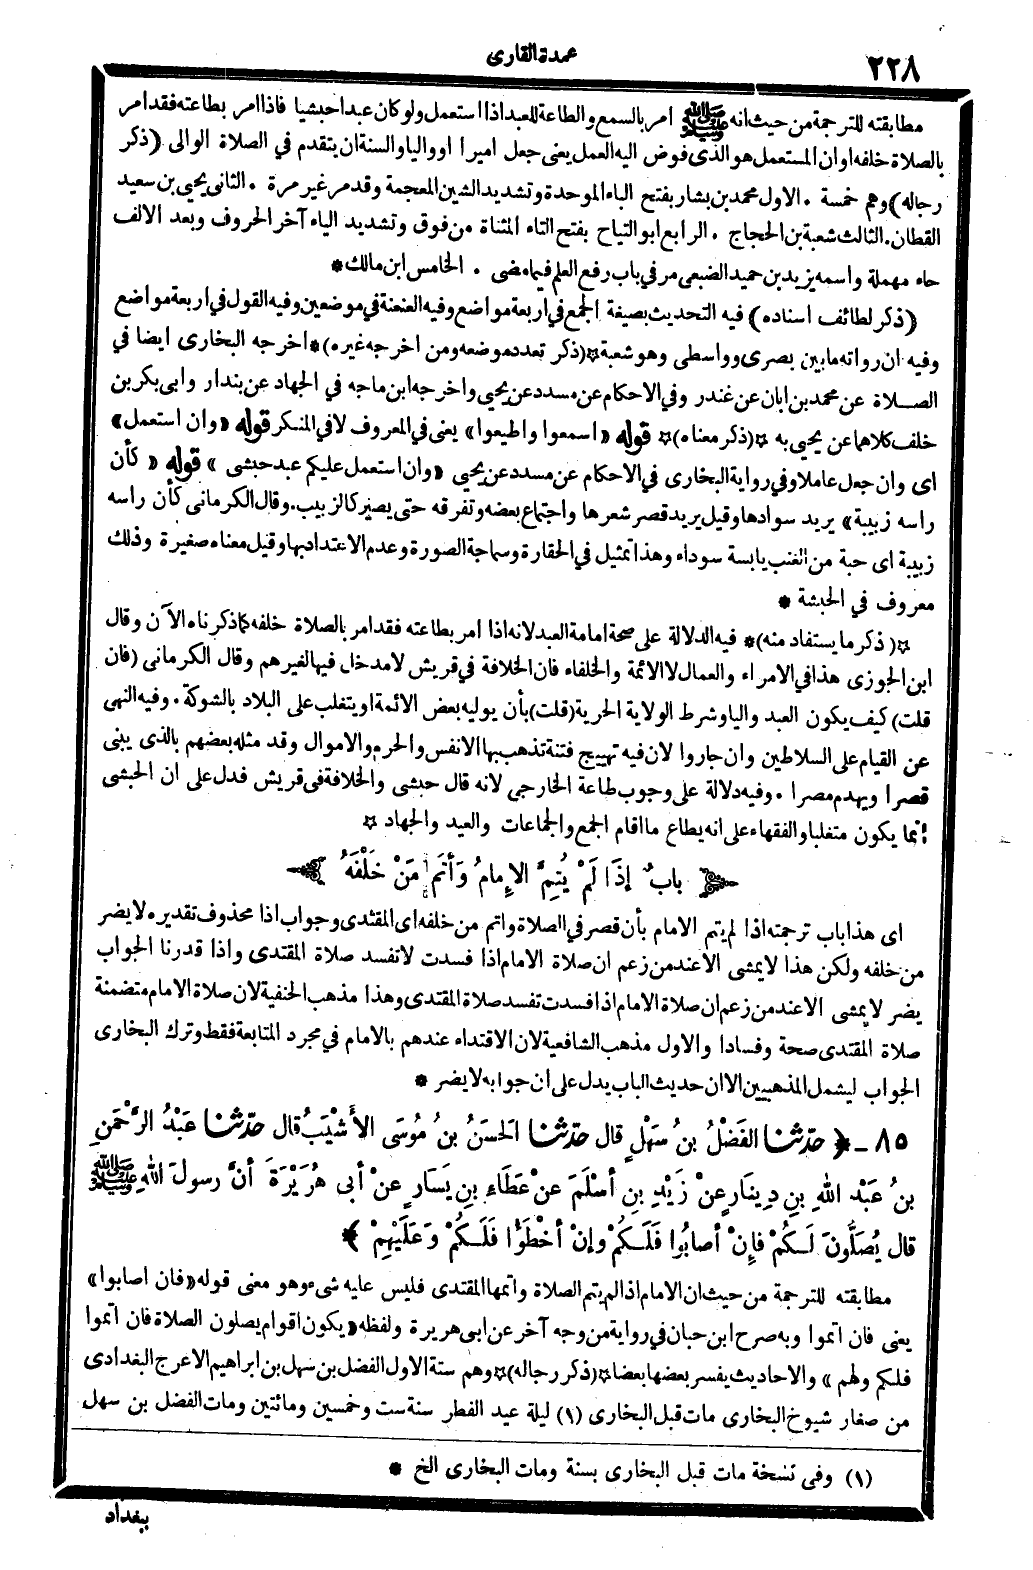 ٢٢٨
عمدة القارى
مطابقته للترجمة من حيث انه ﷺ امر بالسمع والطاعة للعبد اذا استعمل ولو كان عبدا حبشيا فاذا امر بطاعته فقد امر
بالصلاة خلفه او ان المستعمل هو الذى فوض اليه العمل يعنى جعل اميرا او واليا والسنة ان يتقدم في الصلاة الوالى (ذكر
رجاله) وهم خمسة . الاول محمد بن بشار بفتح الباء الموحدة وتشديد الشين المعجمة وقد مر غير مرة . الثانى يحيى بن سعيد
القطان. الثالث شعبة بن الحجاج . الرابع ابو التياح بفتح التاء المثناة من فوق وتشديد الياء آخر الحروف وبعد الالف
حاء مهملة واسمه يزيد بن حميد الضبعى مر في باب رفع العلم فيما مضى . الخامس ابن مالك *
(ذكر لطائف اسناده) فيه التحديث بصيغة الجمع في اربعة مواضع وفيه العنعنة في موضعين وفيه القول في اربعة مواضع
وفيه ان رواته ما بين بصرى وواسطى وهو شعبة ☆(ذكر تعدد موضعه ومن اخرجه غيره)* اخرجه البخارى ايضا في
الصلاة عن محمد بن ابان عن غندر وفي الاحكام عن مسدد عن يحيى واخرجه ابن ماجه في الجهاد عن بندار وابى بكر بن
خلف كلاهما عن يحيى به ☆(ذكر معناه)☆ قوله «اسمعوا واطيعوا» يعنى في المعروف لا في المنكر قوله «وان استعمل»
اى وان جعل عاملا وفي رواية البخارى في الاحكام عن مسدد عن يحيى «وان استعمل عليكم عبد حبشى» قوله «كأن
راسه زبيبة» يريد سوادها وقيل يريد قصر شعرها واجتماع بعضه وتفرقه حتى يصير كالزبيب. وقال الكرمانى كأن راسه
زبيبة اى حبة من العنب يابسة سوداء وهذا تمثيل في الحقارة وسماجة الصورة وعدم الاعتداد بها وقيل معناه صغيرة وذلك
معروف في الحبشة *
☆(ذكر ما يستفاد منه)* فيه الدلالة على صحة امامة العبد لانه اذا امر بطاعته فقد امر بالصلاة خلفه كما ذكرناه الآن وقال
ابن الجوزى هذا في الامراء والعمال لا الائمة والخلفاء فان الخلافة في قريش لا مدخل فيها لغيرهم وقال الكرمانى (فان
قلت) كيف يكون العبد واليا وشرط الولاية الحرية (قلت) بأن يوليه بعض الائمة او يتغلب على البلاد بالشوكة . وفيه النهى
عن القيام على السلاطين وان جاروا لان فيه تهييج فتنة تذهب بها الانفس والحرم والاموال وقد مثله بعضهم بالذى يبنى
قصرا ويهدم مصرا . وفيه دلالة على وجوب طاعة الخارجى لانه قال حبشى والخلافة فى قريش فدل على ان الحبشى
انما يكون متغلبا والفقهاء على انه يطاع ما اقام الجمع والجماعات والعيد والجهاد ☆
باب إِذَا لَمْ يُتِمَّ الإِمامُ وَأَتَمَّ مَنْ خَلْفَهُ
اى هذا باب ترجمته اذا لم يتم الامام بأن قصر في الصلاة واتم من خلفه اى المقتدى وجواب اذا محذوف تقديره لا يضر
من خلفه ولكن هذا لا يمشى الا عند من زعم ان صلاة الامام اذا فسدت لا تفسد صلاة المقتدى واذا قدرنا الجواب
يضر لا يمشى الا عند من زعم ان صلاة الامام اذا فسدت تفسد صلاة المقتدى وهذا مذهب الحنفية لان صلاة الامام متضمنة
صلاة المقتدى صحة وفسادا والاول مذهب الشافعية لان الاقتداء عندهم بالامام في مجرد المتابعة فقط وترك البخارى
الجواب ليشمل المذهبين الا ان حديث الباب يدل على ان جوابه لا يضر *
٨٥ - ﴿ حدّثنا الفَضْلُ بنُ سَهْلٍ قال حدّثنا الحَسَنُ بنُ مُوسَى الأَشْيَبُ قال حدّثنا عَبْدُ الرَّحْمَنِ
بنُ عَبْدِ اللهِ بنِ دِينَارٍ عنْ زَيْدِ بنِ أَسْلَمَ عنْ عَطَاءِ بنِ يَسَارٍ عنْ أبى هُرَيْرَةَ أنَّ رسولَ اللهِ ﷺ
قال يُصَلُّونَ لَكُمْ فإِنْ أصابُوا فَلَكُمْ وإنْ أَخْطَؤُا فَلَكُمْ وَعَلَيْهِمْ ﴾
مطابقته للترجمة من حيث ان الامام اذا لم يتم الصلاة واتمها المقتدى فليس عليه شىء وهو معنى قوله «فان اصابوا»
يعنى فان اتموا وبه صرح ابن حبان في رواية من وجه آخر عن ابى هريرة ولفظه «يكون اقوام يصلون الصلاة فان اتموا
فلكم ولهم» والاحاديث يفسر بعضها بعضا ☆(ذكر رجاله)☆ وهم ستة الاول الفضل بن سهل بن ابراهيم الاعرج البغدادى
من صغار شيوخ البخارى مات قبل البخارى (١) ليلة عيد الفطر سنة ست وخمسين ومائتين ومات الفضل بن سهل
(١) وفى نسخة مات قبل البخارى بسنة ومات البخارى الخ *
ببغداد